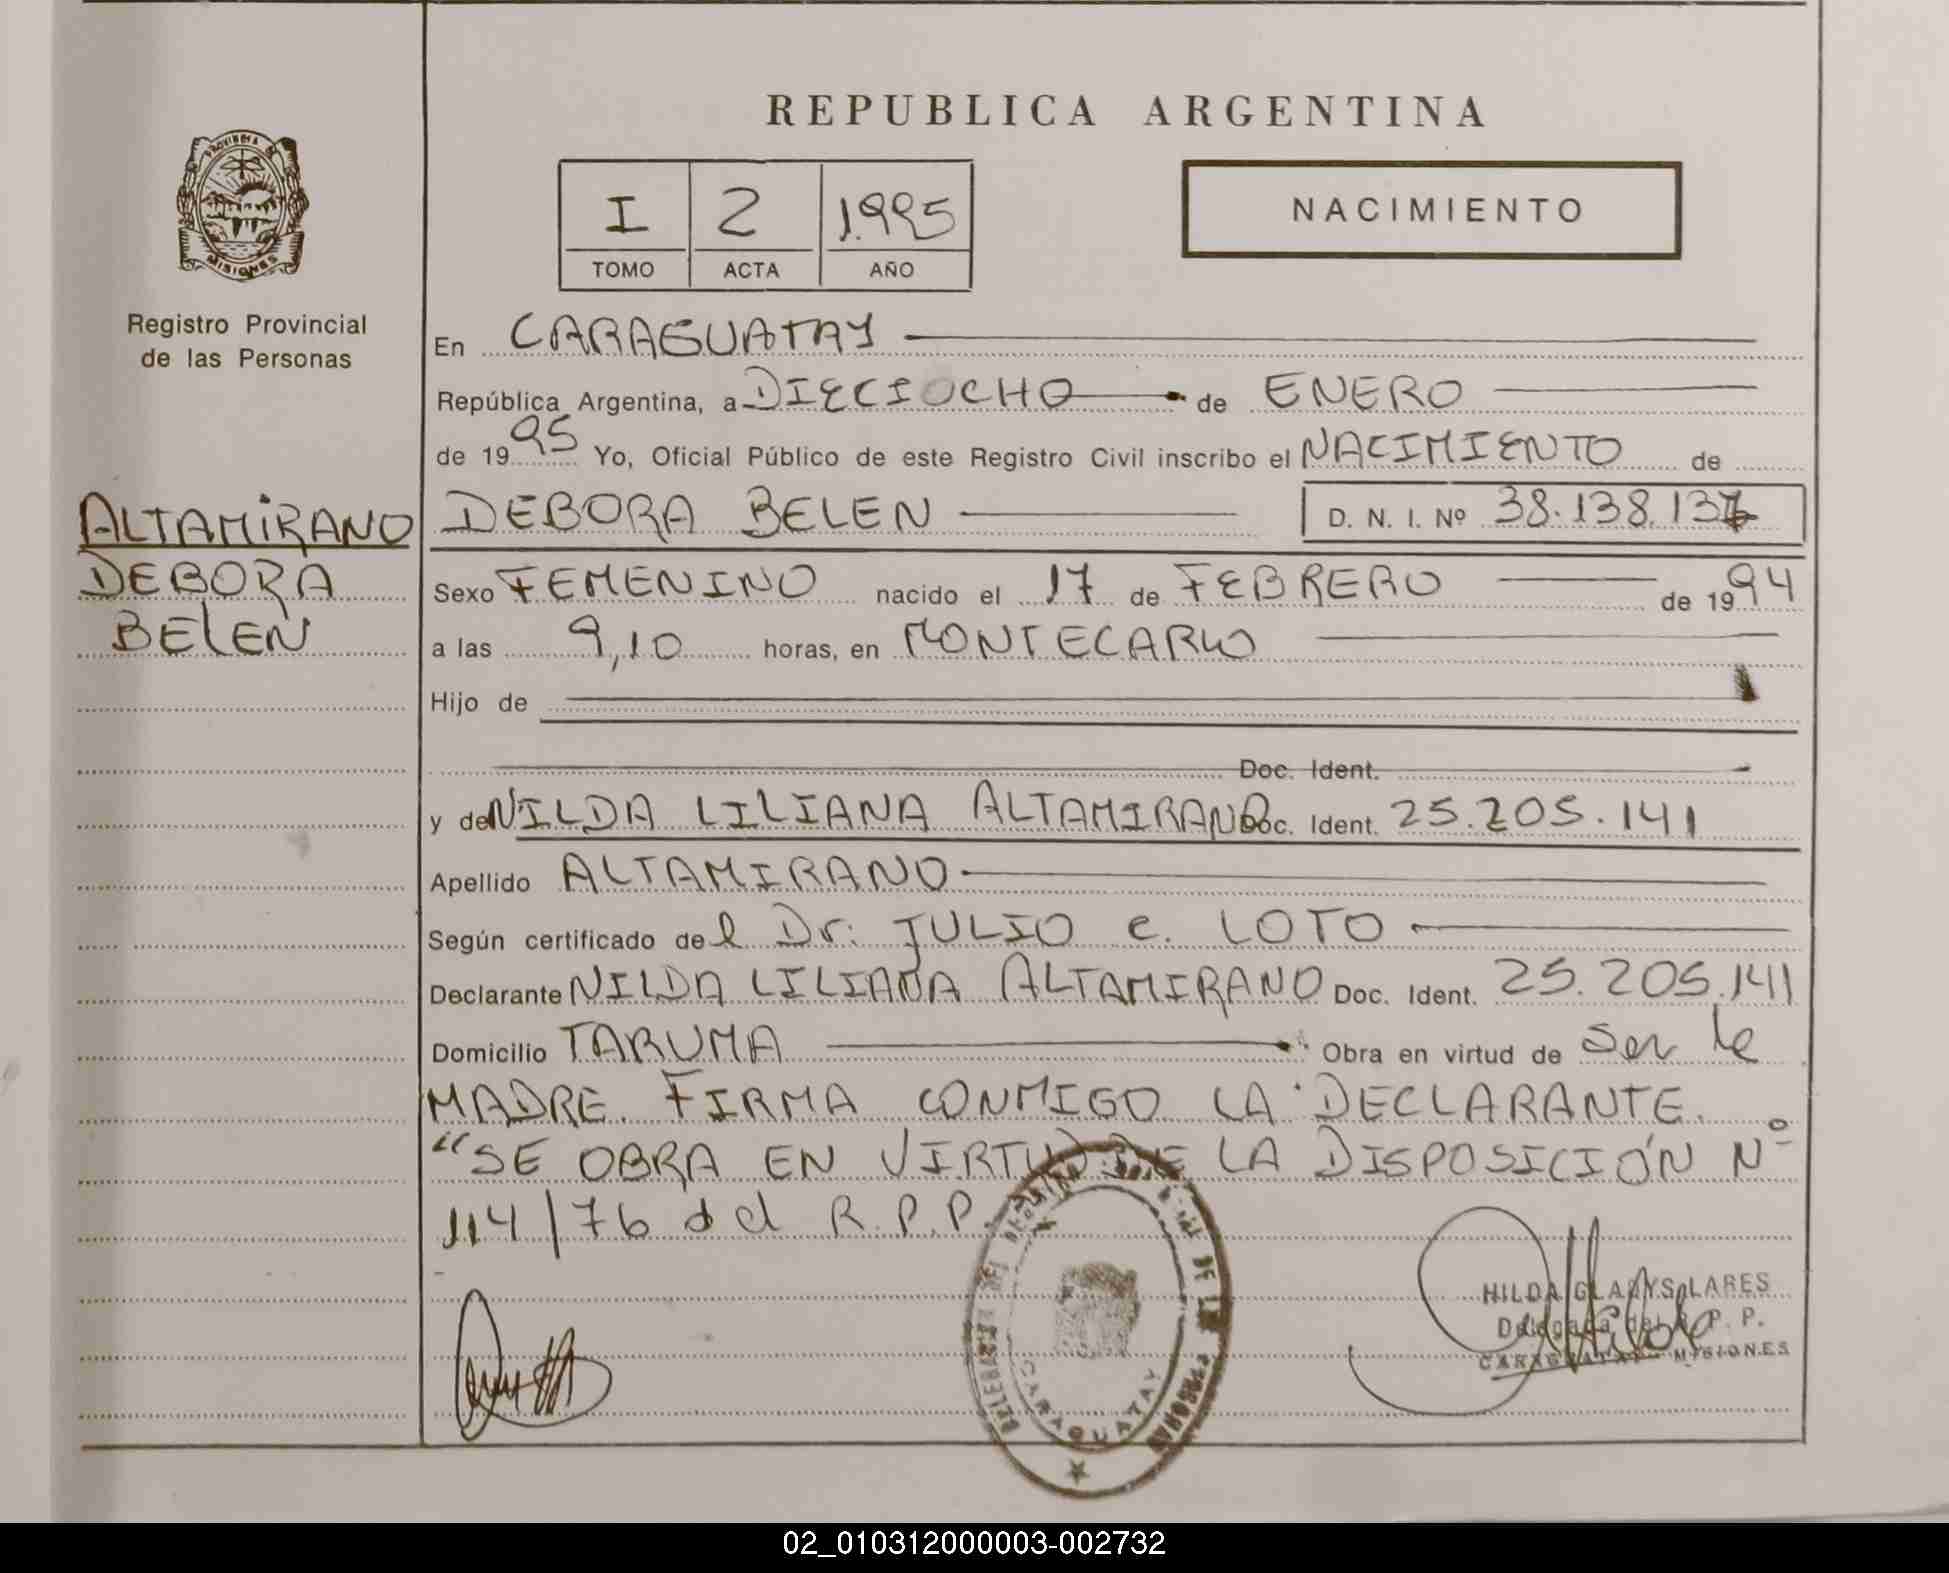 REPUBLICA ARGENTINA
PROVINCIA DE
MISIONES
Registro Provincial
de las Personas
I 2 1.995
TOMO ACTA AÑO
NACIMIENTO
En CARAGUATAY
República Argentina, a DIECIOCHO de ENERO
de 1995 Yo, Oficial Público de este Registro Civil inscribo el NACIMIENTO de
ALTAMIRANO
DEBORA
BELEN
DEBORA BELEN D. N. I. Nº 38.138.137
Sexo FEMENINO nacido el 17 de FEBRERO de 1994
a las 9,10 horas, en MONTECARLO
Hijo de
Doc. Ident.
y de NILDA LILIANA ALTAMIRANO Doc. Ident. 25.205.141
Apellido ALTAMIRANO
Según certificado del Dr. JULIO e. LOTO
Declarante NILDA LILIANA ALTAMIRANO Doc. Ident. 25.205.141
Domicilio TARUMA Obra en virtud de ser la
MADRE. FIRMA CONMIGO LA DECLARANTE.
"SE OBRA EN VIRTUD DE LA DISPOSICIÓN Nº
114/76 del R.P.P.
CARAGUATAY
HILDA GLADYS LARES
Delegada del R. P. P.
CARAGUATAY - MISIONES
02_010312000003-002732